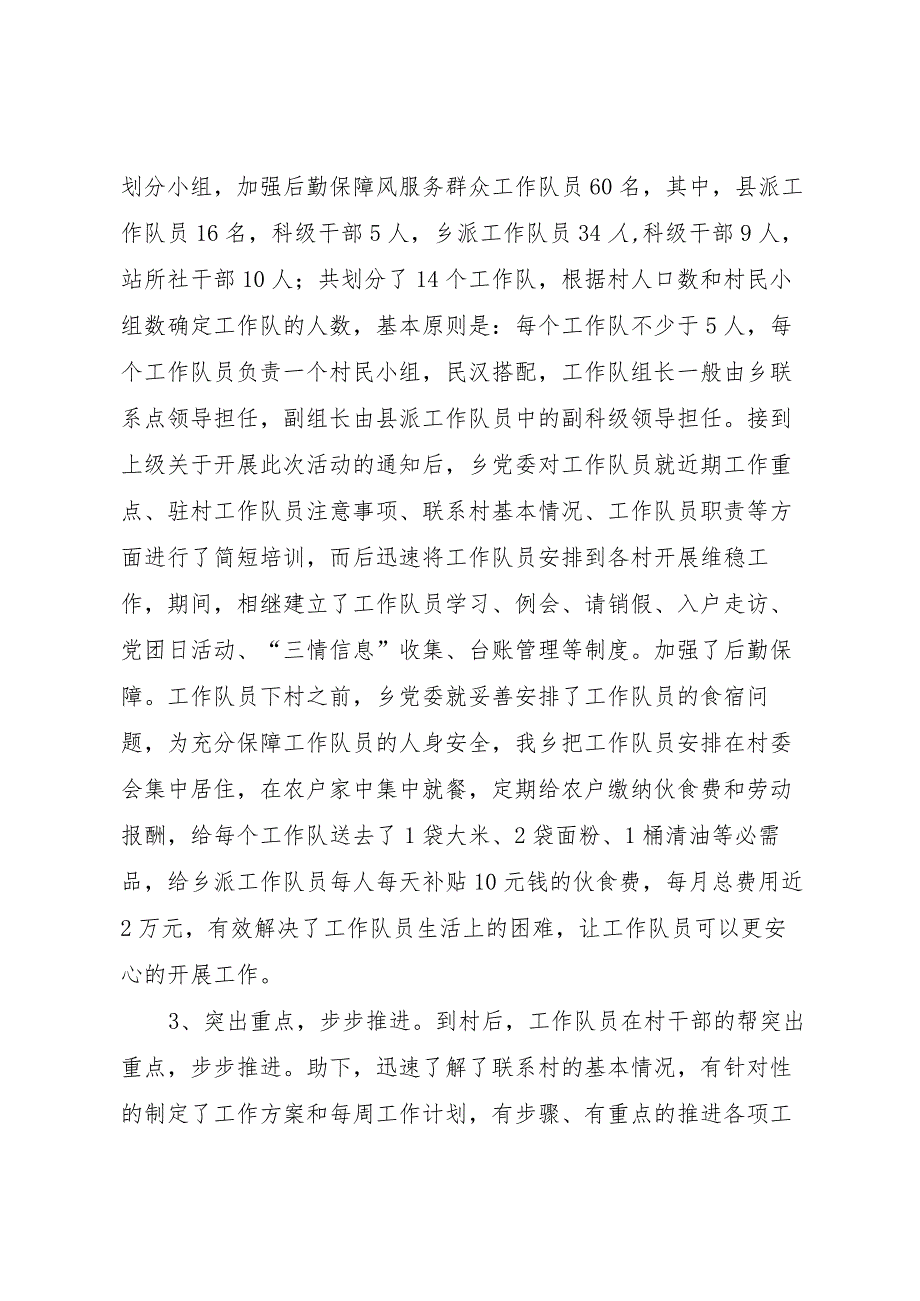 划分小组，加强后勤保障风服务群众工作队员60名，其中，县派工
作队员16名，科级干部5人，乡派工作队员34人,科级干部9人，
站所社干部10人；共划分了14个工作队，根据村人口数和村民小
组数确定工作队的人数，基本原则是：每个工作队不少于5人，每
个工作队员负责一个村民小组，民汉搭配，工作队组长一般由乡联
系点领导担任，副组长由县派工作队员中的副科级领导担任。接到
上级关于开展此次活动的通知后，乡党委对工作队员就近期工作重
点、驻村工作队员注意事项、联系村基本情况、工作队员职责等方
面进行了简短培训，而后迅速将工作队员安排到各村开展维稳工
作，期间，相继建立了工作队员学习、例会、请销假、入户走访、
党团日活动、“三情信息”收集、台账管理等制度。加强了后勤保
障。工作队员下村之前，乡党委就妥善安排了工作队员的食宿问
题，为充分保障工作队员的人身安全，我乡把工作队员安排在村委
会集中居住，在农户家中集中就餐，定期给农户缴纳伙食费和劳动
报酬，给每个工作队送去了1袋大米、2袋面粉、1桶清油等必需
品，给乡派工作队员每人每天补贴10元钱的伙食费，每月总费用近
2万元，有效解决了工作队员生活上的困难，让工作队员可以更安
心的开展工作。
3、突出重点，步步推进。到村后，工作队员在村干部的帮突出
重点，步步推进。助下，迅速了解了联系村的基本情况，有针对性
的制定了工作方案和每周工作计划，有步骤、有重点的推进各项工